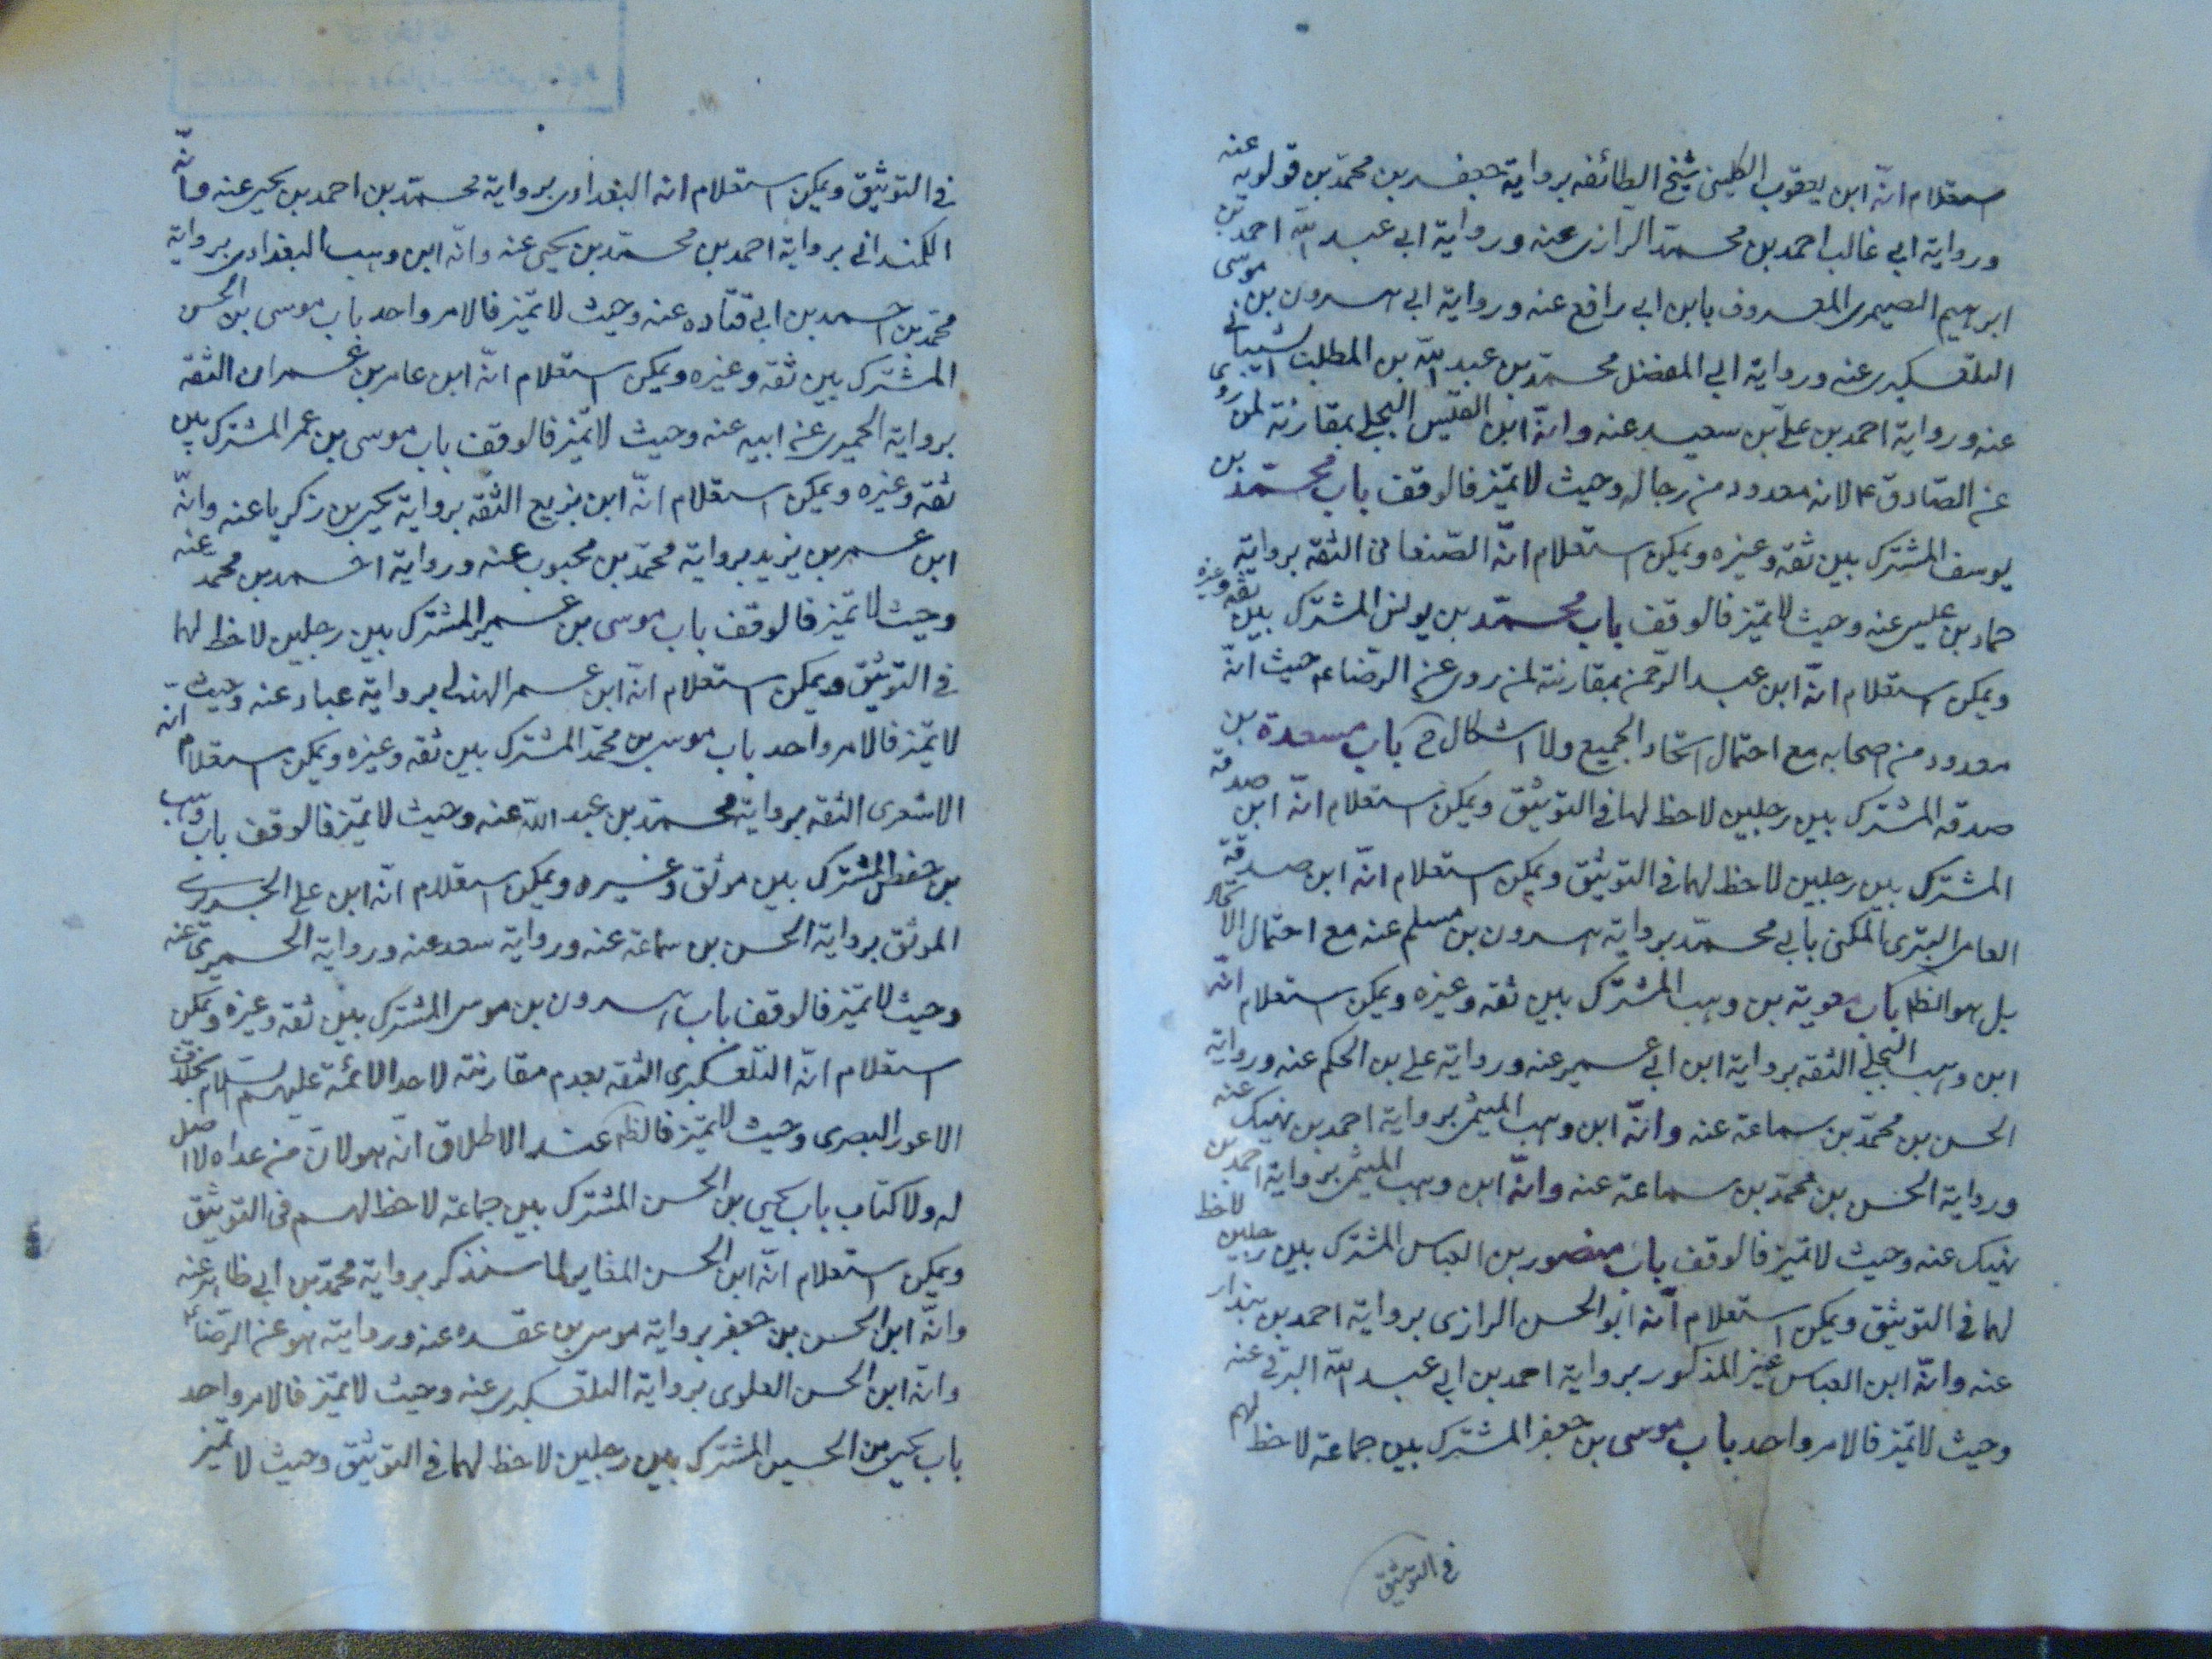 استعلام انّه ابن يعقوب الكلينى شيخ الطائفه برواية جعفر بن محمّد بن قولويه عنه
ورواية ابى غالب احمد بن محمّد الرازى عنه ورواية ابى عبد الله احمد بن
ابرهيم الصيمرى المعروف بابن ابى رافع عنه ورواية ابى هرون بن موسى
التلعكبرى عنه ورواية ابى المفضل محمّد بن عبد الله بن المطلب الشيبانى
عنه ورواية احمد بن علىّ بن سعيد عنه وانّه ابن القيس البجلى بمقارنته لمن روى
عن الصّادق ع لانه معدود من رجاله وحيث لا تميّز فالوقف باب محمّد بن
يوسف المشترك بين ثقه وغيره ويمكن استعلام انّه الصّنعانى الثقه برواية
حماد بن عيسى عنه وحيث لا تميّز فالوقف باب محمّد بن يونس المشترك بين ثقه وغيره
ويمكن استعلام انّه ابن عبد الرّحمن بمقارنته لمن روى عن الرّضا ع م حيث انّه
معدود من اصحابه مع احتمال اتحاد الجميع ولا اشكال ح باب مسعدة بن
صدقه المشترك بين رجلين لاحظ لهما فى التوثيق ويمكن استعلام انّه ابن صدقه
المشترك بين رجلين لاحظ لهما فى التوثيق ويمكن استعلام انّه ابن صدقة
العامى البترى المكنى بابى محمّد برواية هرون بن مسلم عنه مع احتمال الاتحاد
بل هو الظ باب معوية بن وهب المشترك بين ثقه وغيره ويمكن استعلام انّه
ابن وهب البجلى الثقه برواية ابن ابى عمير عنه ورواية على بن الحكم عنه ورواية
الحسن بن محمّد بن سماعة عنه وانّه ابن وهب الميثمى برواية احمد بن نهيك عنه
ورواية الحسن بن محمّد بن سماعة عنه وانّه ابن وهب الميثمى برواية احمد بن
نهيك عنه وحيث لا تميّز فالوقف باب منصور بن العباس المشترك بين رجلين لاحظ
لهما فى التوثيق ويمكن استعلام انّه ابو الحسن الرازى برواية احمد بن بندار
عنه وانّه ابن العباس غير المذكور برواية احمد بن ابى عبد الله البرقى عنه
وحيث لا تميّز فالامر واحد باب موسى بن جعفر المشترك بين جماعة لاحظ لهم
فى التوثيق
فى التوثيق ويمكن استعلام انه البغدادى برواية محمّد بن احمد بن يحيى عنه وانّه
الكمندانى برواية احمد بن محمّد بن يحيى عنه وانّه ابن وهب البغدادى برواية
محمّد بن احمد بن ابى قتاده عنه وحيث لا تميّز فالامر واحد باب موسى بن الحسن
المشترك بين ثقه وغيره ويمكن استعلام انّه ابن عامر بن عمران الثقه
برواية الحميرى عن ابيه عنه وحيث لا تميّز فالوقف باب موسى بن عمر المشترك بين
ثقه وغيره ويمكن استعلام انّه ابن بزيع الثقه برواية يحيى بن زكريا عنه وانّه
ابن عمر بن يزيد برواية محمّد بن محبوب عنه ورواية احمد بن محمد عنه
وحيث لا تميّز فالوقف باب موسى بن عمير المشترك بين رجلين لاحظ لهما
فى التوثيق ويمكن استعلام انّه ابن عمر الهذلى برواية عباد عنه وحيث
لا تميّز فالامر واحد باب موسى بن محمّد المشترك بين ثقه وغيره ويمكن استعلام انه
الاشعرى الثقه برواية محمّد بن عبد الله عنه وحيث لا تميّز فالوقف باب وهيب
بن حفص المشترك بين موثق وغيره ويمكن استعلام انّه ابن على الجريرى
الموثق برواية الحسن بن سماعة عنه ورواية سعد عنه ورواية الحميرى عنه
وحيث لا تميّز فالوقف باب هرون بن موسى المشترك بين ثقه وغيره ويمكن
استعلام انّه التلعكبرى الثقه بعدم مقارنته لاحد الائمة عليهم السلام بخلاف
الاعور البصرى وحيث لا تميّز فالظ عند الاطلاق انّه هو لان من عداه لا اصل
له ولا كتاب باب يحيى بن الحسن المشترك بين جماعة لاحظ لهم فى التوثيق
ويمكن استعلام انّه ابن الحسن المغاير لما سنذكر برواية محمّد بن ابى طاهر عنه
وانّه ابن الحسن بن جعفر برواية موسى بن عقده عنه وروايته هو عن الرّضا ع
وانّه ابن الحسن العلوى برواية التلعكبرى عنه وحيث لا تميّز فالامر واحد
باب يحيى بن الحسين المشترك بين رجلين لاحظ لهما فى التوثيق وحيث لا تميّز